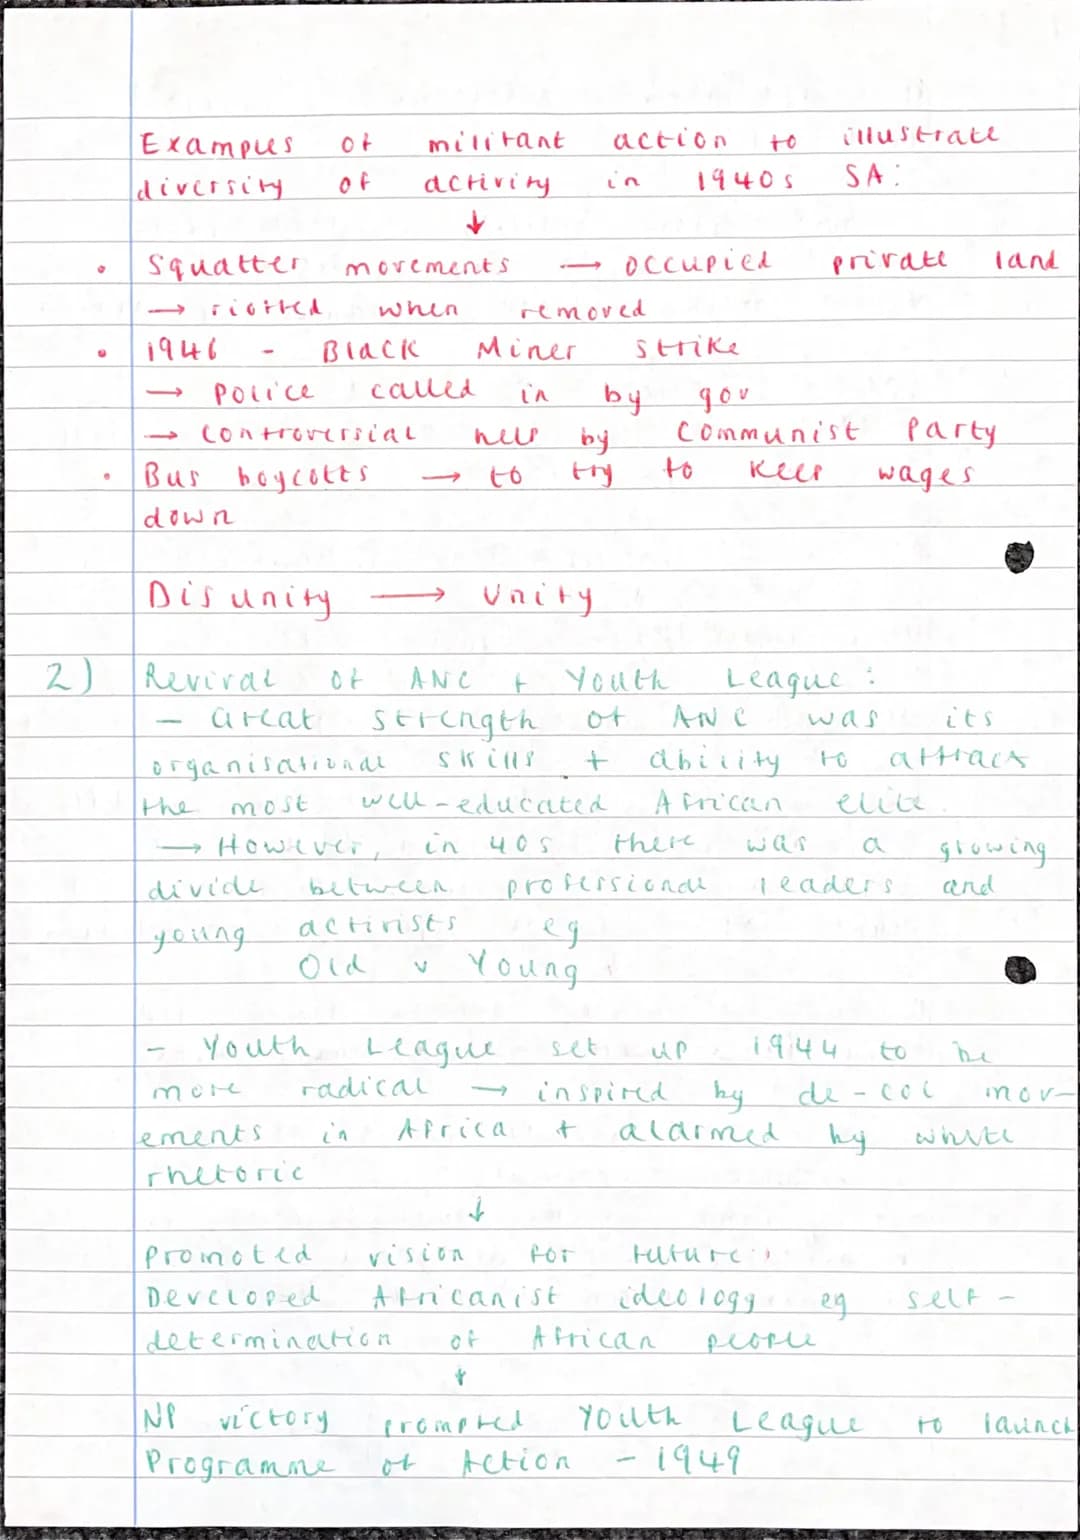 Examples of militant action to illustrate
diversity of activity in 1940s SA:
↓
• Squatter movements → occupied private land
→ riotted when removed
• 1946 - Black Miner Strike
→ Police called in by gov
→ controversial help by Communist Party
• Bus boycotts → to try to keep wages
down
Disunity → Unity
2) Revival of ANC + Youth League:
- Great strength of ANC was its
organisational skills + ability to attract
the most well-educated African elite.
→ However, in 40s there was a growing
divide between professional leaders and
young activists eg
Old v Young
- Youth League set up 1944 to be
more radical → inspired by de-col mov-
ements in Africa + alarmed by white
rhetoric
↓
Promoted vision for future:
Developed Africanist ideology eg self-
determination of African people
↓
NP victory prompted Youth League to launch
Programme of Action - 1949